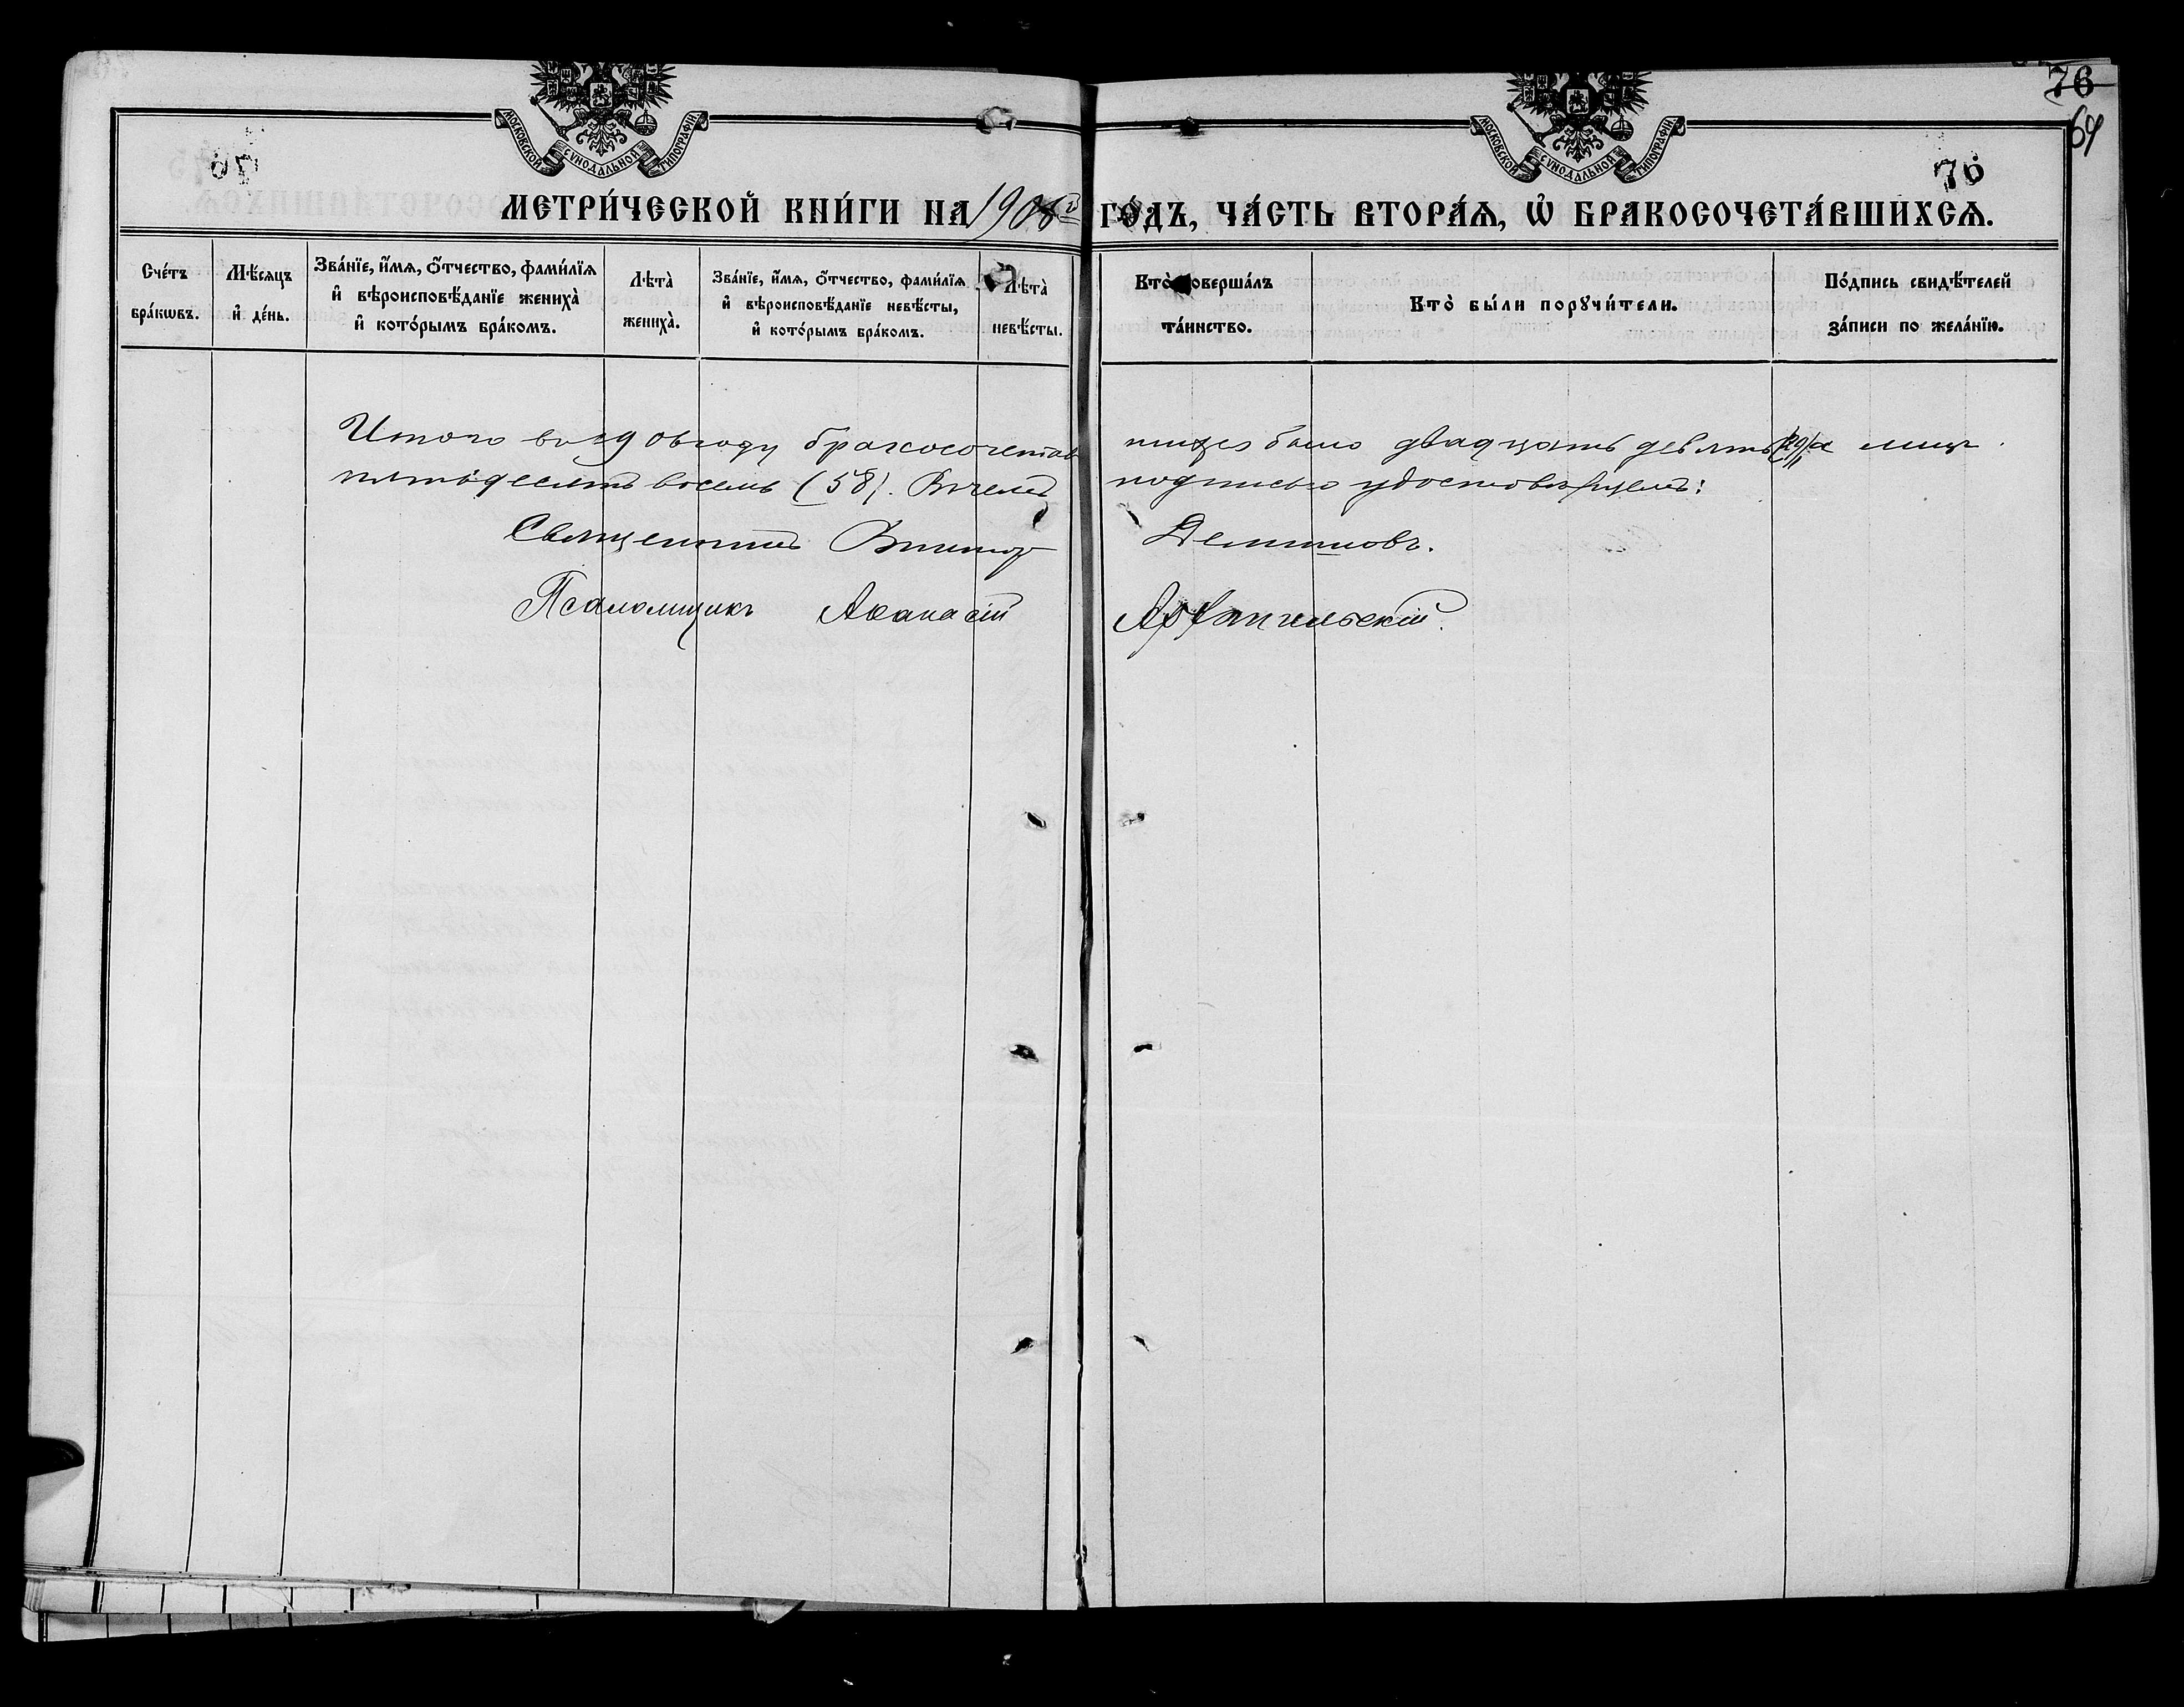 76
64
МОСКОВСКОЙ СѴНОДАЛЬНОЙ ТИПОГРАФІИ
МОСКОВСКОЙ СѴНОДАЛЬНОЙ ТИПОГРАФІИ
76
МЕТРИ́ЧЕСКОЙ КНИ́ГИ НА 1908й ГО́ДЪ, ЧА́СТЬ ВТОРА́Ѧ, Ѡ҆ БРАКОСОЧЕТА́ВШИХСѦ.
Сче́тъ бра́кѡвъ.
Мѣ́сѧцъ и҆ де́нь.
Зва́нїе, и҆́мѧ, ѻ҆́тчество, фами́лїѧ и҆ вѣроисповѣ́данїе жениха̀ и҆ кото́рымъ бра́комъ.
Лѣта̀ жениха̀.
Зва́нїе, и҆́мѧ, ѻ҆́тчество, фами́лїѧ и҆ вѣроисповѣ́данїе невѣ́сты, и҆ кото́рымъ бра́комъ.
Лѣта̀ невѣ́сты.
Кто̀ соверша́лъ та́инство.
Кто̀ бы́ли порꙋчи́тели.
По́дпись свидѣ́телей за́писи по жела́нїю.
Итого въ 1908 году бракосочетав шихся было двадцать девять (29) а лицъ
пятьдесятъ восемь (58). Въ чемъ подписью удостовѣряемъ:
Священникъ Викторъ
Псаломщикъ Аѳанасій Архангельскій.